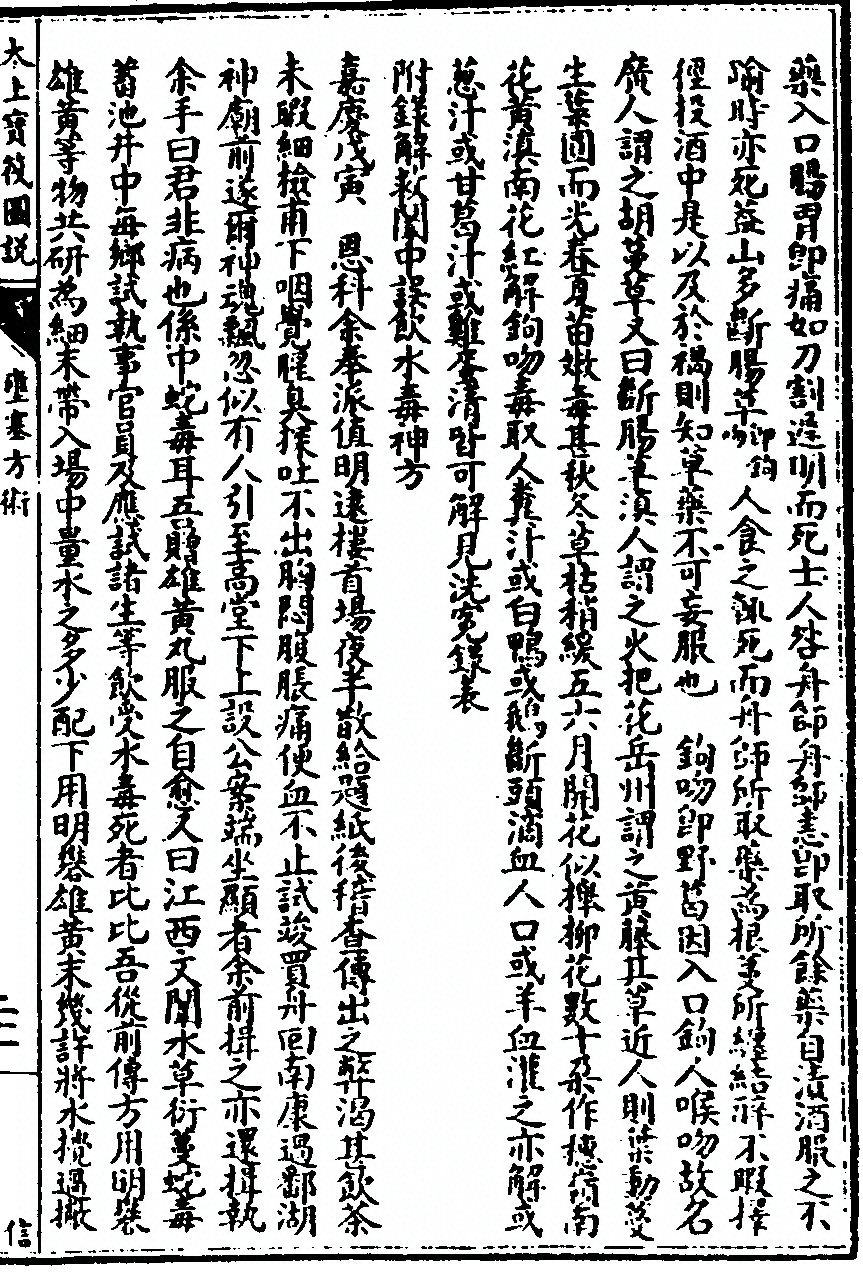 藥入口腸胃卽痛如刀割逡巡而死士人咎舟師舟師恚卽取所餘藥自漬酒服之不
踰時亦死葢山多斷腸草卽鉤吻人食之輒死而舟師所取藥爲根蔓所纏結醉不暇擇
徑投酒中是以及於禍則知草藥不可妄服也　鉤吻卽野葛因入口鉤人喉吻故名
廣人謂之胡蔓草又曰斷腸草滇人謂之火把花岳州謂之黃藤其草近人則葉動蔓
生葉圓而光春夏苗嫩毒甚秋冬草枯稍緩五六月開花似櫸柳花數十朶作穗嶺南
花黃滇南花紅解鉤吻毒取人糞汁或白鴨或鵝斷頭滴血人口或羊血灌之亦解或
葱汁或甘葛汁或雞蛋清皆可解見洗寃錄表
附錄解救闈中誤飲水毒神方
嘉慶戊寅　恩科余奉派值明遠樓首場夜半散給題紙後稽查傳出之弊渴甚飲茶
未暇細檢甫下咽覺腥臭探吐不出胸悶腹脹痛便血不止試竣買舟回南康過鄱湖
神廟前逐爾神魂飄忽似有人引至高堂下上設公案端坐顯者余前揖之亦還揖執
余手曰君非病也係中蛇毒耳吾贈雄黃丸服之自愈又曰江西文闈水草衍蔓蛇毒
蓄池井中每鄉試執事官員及應試諸生等飲受水毒死者比比吾從前傳方用明礬
雄黃等物共研爲細末帶入場中量水之多少配下用明礬雄黃末幾許將水攪過澈
太上寶筏圖説
壅塞方術
信